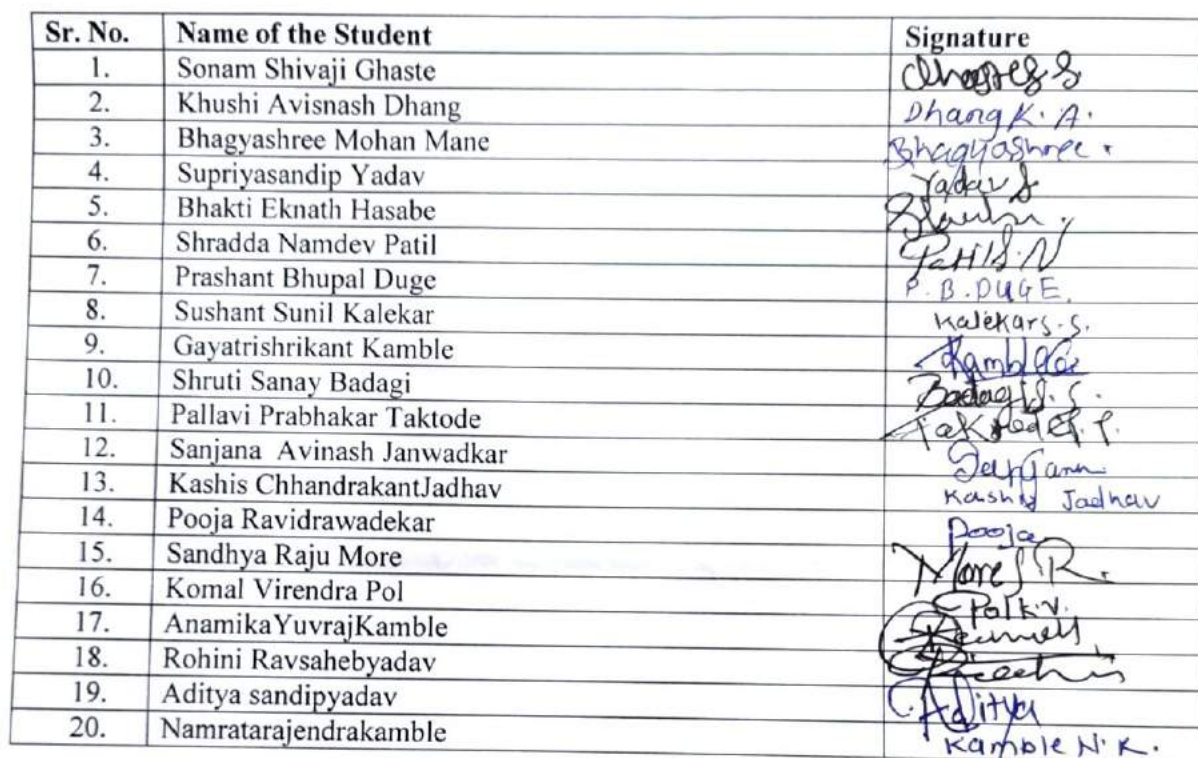 Sr. No. Name of the Student Signature
1. Sonam Shivaji Ghaste
2. Khushi Avisnash Dhang Dhang K. A.
3. Bhagyashree Mohan Mane Bhagyashree.
4. Supriyasandip Yadav Yadav S
5. Bhakti Eknath Hasabe
6. Shradda Namdev Patil Patil S.N
7. Prashant Bhupal Duge P.B.DUGE.
8. Sushant Sunil Kalekar Kalekar s.s.
9. Gayatrishrikant Kamble Kamble
10. Shruti Sanay Badagi Badagi S.S.
11. Pallavi Prabhakar Taktode
12. Sanjana Avinash Janwadkar
13. Kashis ChhandrakantJadhav Kashis Jadhav
14. Pooja Ravidrawadekar Pooja
15. Sandhya Raju More More S R.
16. Komal Virendra Pol Pol k.v.
17. AnamikaYuvrajKamble
18. Rohini Ravsahebyadav
19. Aditya sandipyadav Aditya
20. Namratarajendrakamble Kamble N. R.